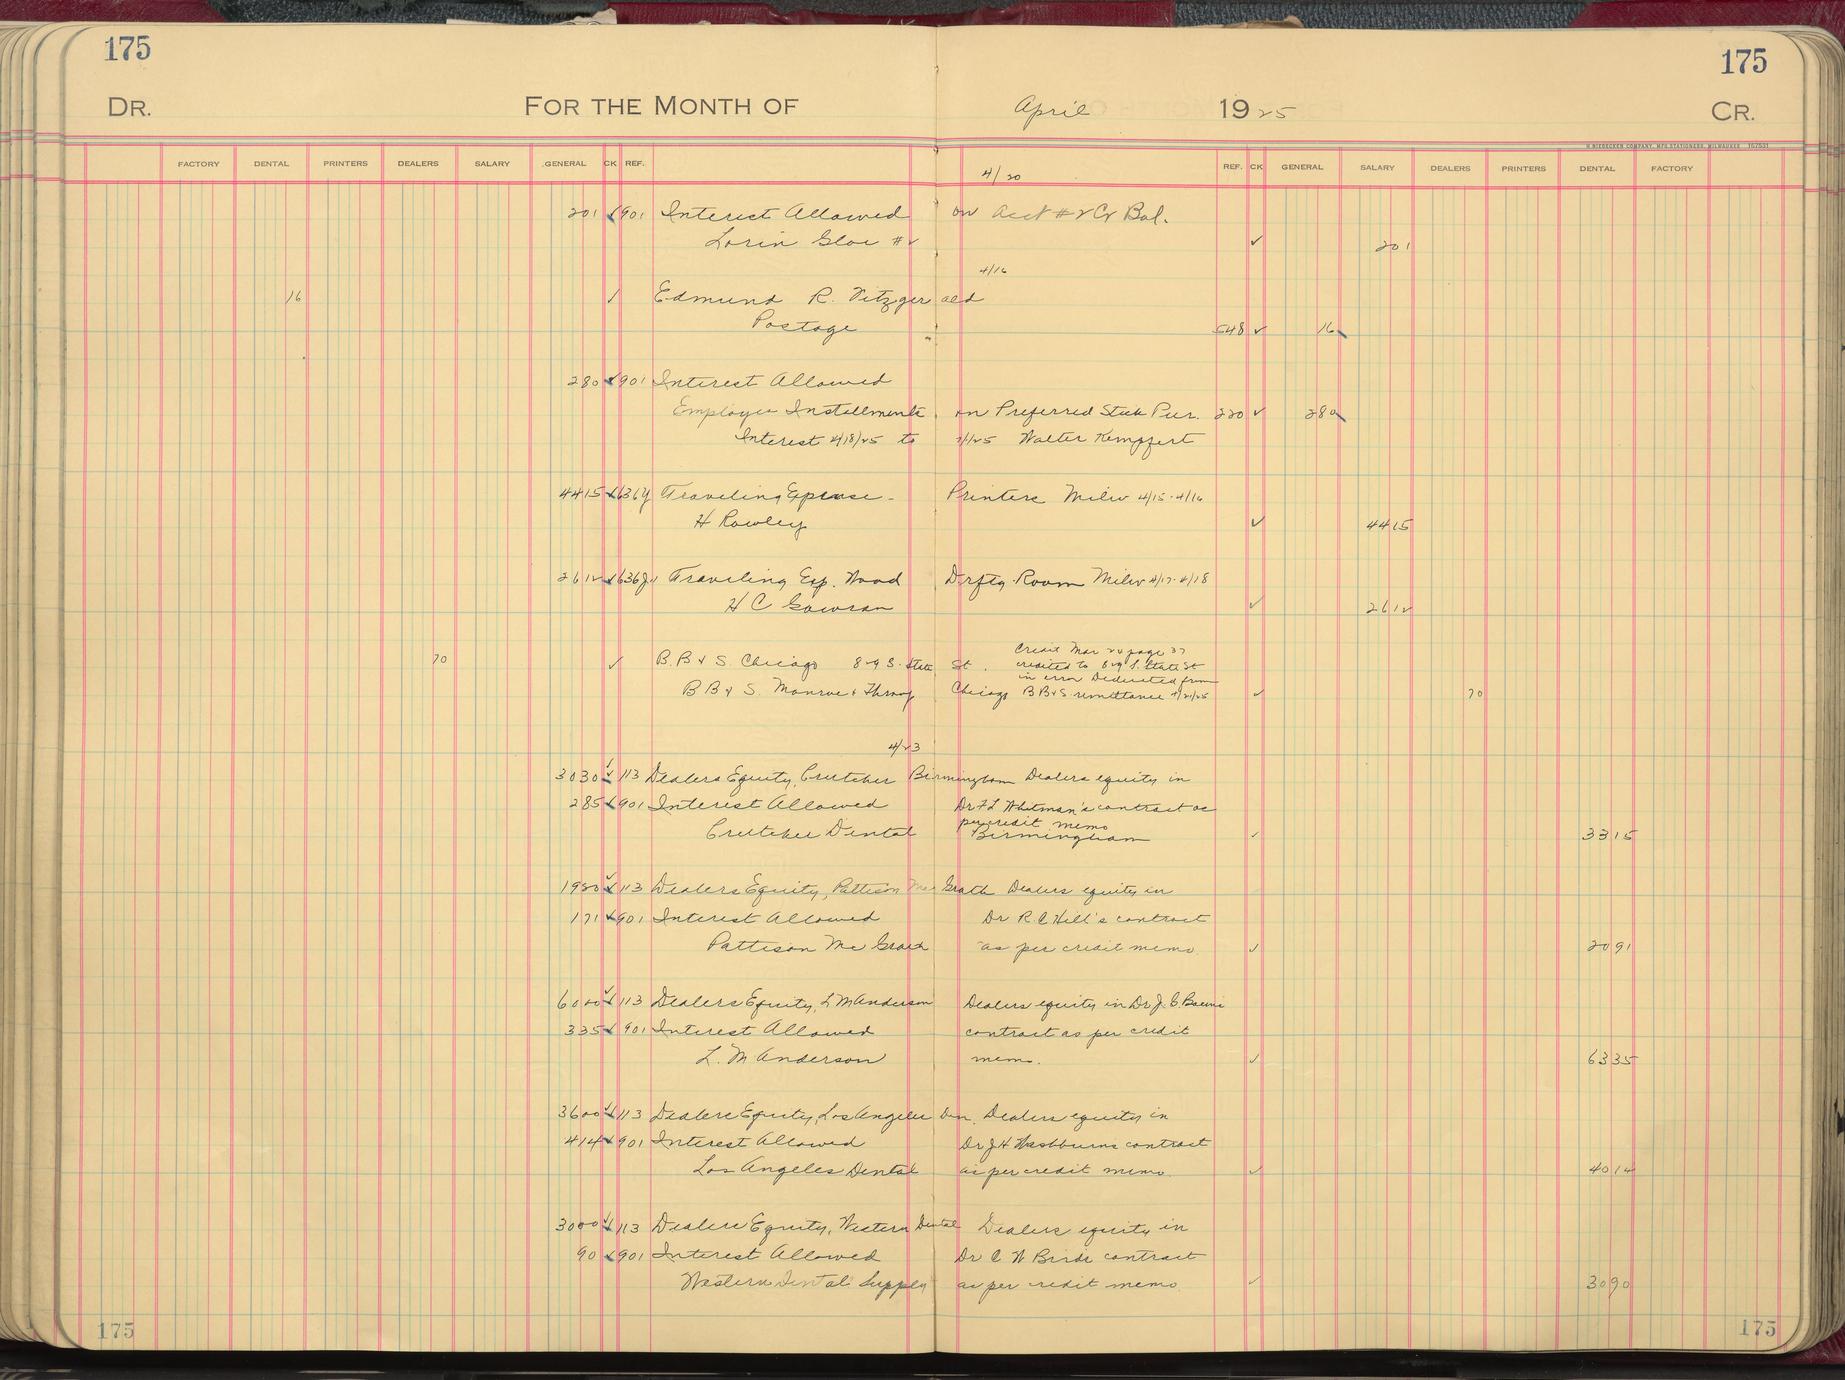 175 175
DR. FOR THE MONTH OF April 1925 CR.
H. NIEDECKEN COMPANY, MFG. STATIONERS, MILWAUKEE 157531
FACTORY DENTAL PRINTERS DEALERS SALARY GENERAL CK REF. REF. CK GENERAL SALARY DEALERS PRINTERS DENTAL FACTORY
4/20
201 ✓ 901 Interest Allowed on Acct #2 Cr Bal.
Lorin Gloe #2 ✓ 201
4/16
16 ✓ Edmund R. Fitzgerald
Postage 548 ✓ 16
280 ✓ 901 Interest Allowed
Employes Installments on Preferred Stock Pur. 220 ✓ 280
Interest 4/18/25 to 7/1/25 Walter Kempfert
4415 ✓ 636Y Traveling Expense - Printers Milw 4/15-4/16
H Rowley ✓ 4415
2612 ✓ Traveling Exp. Wood Drftg. Room Milw 4/17-4/18
H C Gowran ✓ 2612
Credit Mar 24 page 37
70 ✓ B. B & S. Chicago 8-9 S. State St. credited to 8-9 S. State St
in error Deducted from
B B & S. Monroe & Throop Chicago B B & S. remittance 4/21/25 ✓ 70
4/23
3030 ✓ 113 Dealers Equity, Crutcher Birmingham Dealers equity in
285 ✓ 901 Interest Allowed Dr F L Whitman's contract as
per credit memo
Crutcher Dental Birmingham ✓ 3315
1920 ✓ 113 Dealers Equity, Pattison McGrath Dealers equity in
171 ✓ 901 Interest Allowed Dr R. C Hill's contract
Pattison Mc Grath as per credit memo. ✓ 2091
6000 ✓ 113 Dealers Equity, L M Anderson Dealers equity in Dr J. C.
335 ✓ 901 Interest Allowed contract as per credit
L. M Anderson memo. ✓ 6335
3600 ✓ 113 Dealers Equity, Los Angeles Den. Dealers equity in
414 ✓ 901 Interest Allowed Dr J H Washburns contract
Los Angeles Dental as per credit memo. ✓ 4014
3000 ✓ 113 Dealers Equity, Western Dental Dealers equity in
90 ✓ 901 Interest Allowed Dr C W Birds contract
Western Dental Supply as per credit memo. ✓ 3090
175 175